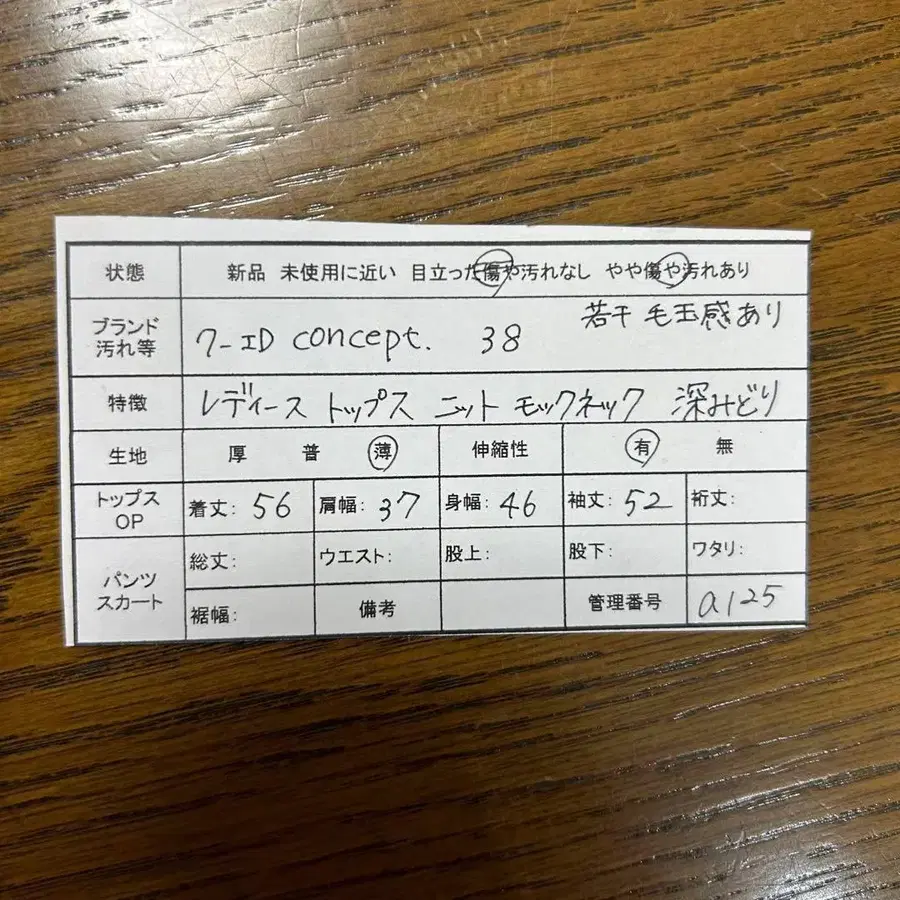 状態 新品 未使用に近い 目立った傷や汚れなし やや傷や汚れあり
ブランド
汚れ等
若干 毛玉感あり
7-ID concept. 38
特徴 レディース トップス ニット モックネック 深みどり
生地 厚 普 薄 伸縮性 有 無
トップス
OP
着丈: 56 肩幅: 37 身幅: 46 袖丈: 52 裄丈:
パンツ
スカート
総丈: ウエスト: 股上: 股下: ワタリ:
裾幅: 備考 管理番号 a125